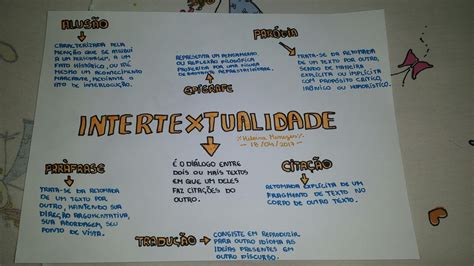 ALUSÃO
CARACTERIZADA PELA
MENÇÃO QUE SE ATRIBUI
A UM PERSONAGEM, A UM
FATO HISTÓRICO, OU ATÉ
MESMO UM ACONTECIMENTO
MARCANTE, MEDIANTE O
ATO DE INTERLOCUÇÃO.
REPRESENTA UM PENSAMENTO
OU REFLEXÃO FILOSÓFICA
PROFERIDA POR UMA FIGURA
EPÍGRAFE
PARÓDIA
TRATA-SE DA RETOMADA
DE UM TEXTO POR OUTRO,
SENDO DE MANEIRA
EXPLÍCITA OU IMPLÍCITA
COM PROPÓSITO CRÍTICO,
IRÔNICO OU HUMORÍSTICO.
INTERTEXTUALIDADE
PARÁFRASE
TRATA-SE DA RETOMADA
DE UM TEXTO POR
OUTRO, MANTENDO SUA
DIREÇÃO ARGUMENTATIVA,
SUA ABORDAGEM, SEU
PONTO DE VISTA.
É O DIÁLOGO ENTRE
DOIS OU MAIS TEXTOS
EM QUE UM DELES
FAZ CITAÇÕES DO
OUTRO.
CITAÇÃO
RETOMADA EXPLÍCITA DE UM
FRAGMENTO DE TEXTO NO
CORPO DE OUTRO TEXTO.
TRADUÇÃO
CONSISTE EM REPRODUZIR
PARA OUTRO IDIOMA AS
IDEIAS PRESENTES EM
OUTRO DISCURSO.